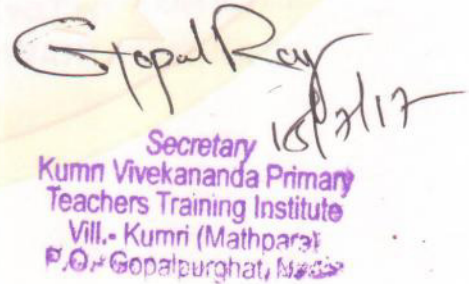 Gopal Ray
18/7/17
Secretary
Kumri Vivekananda Primary
Teachers Training Institute
Vill.- Kumri (Mathpara)
P.O.- Gopalpurghat,